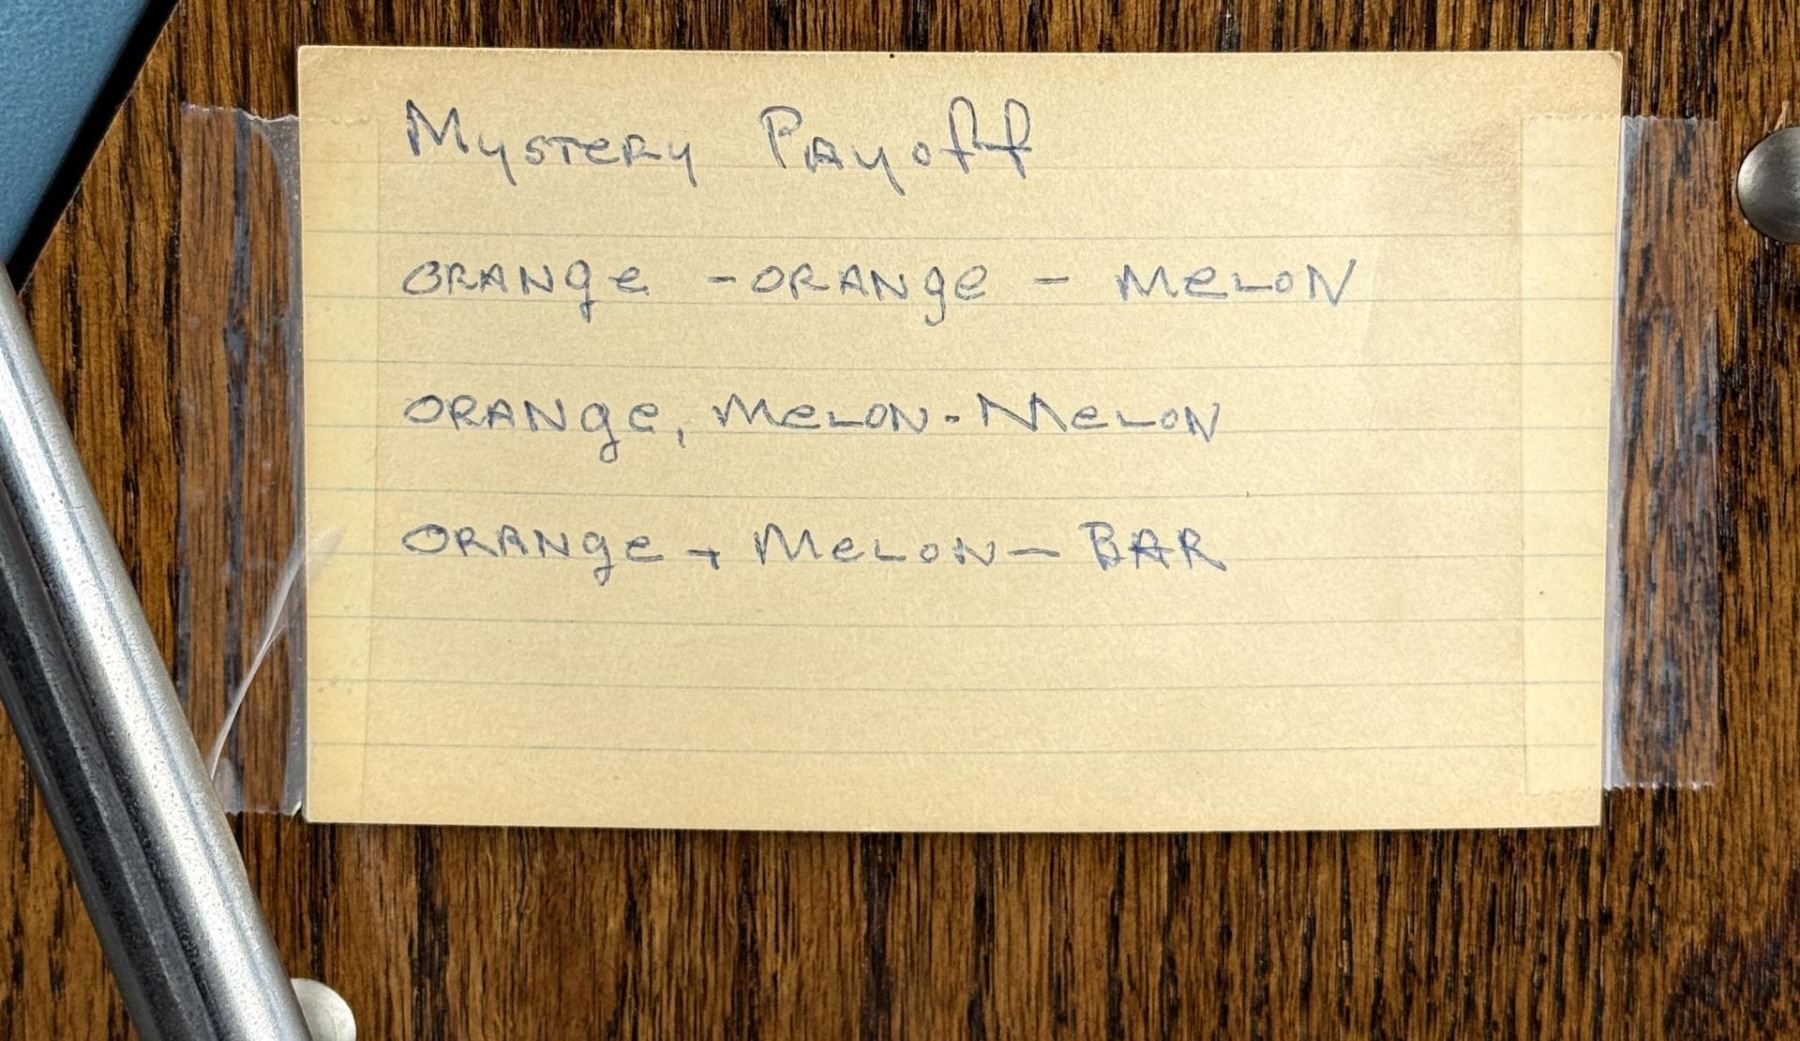 Mystery Payoff
ORANge - ORANge - MeLON
ORANge, MeLON - MeLON
ORANge + MeLON - BAR